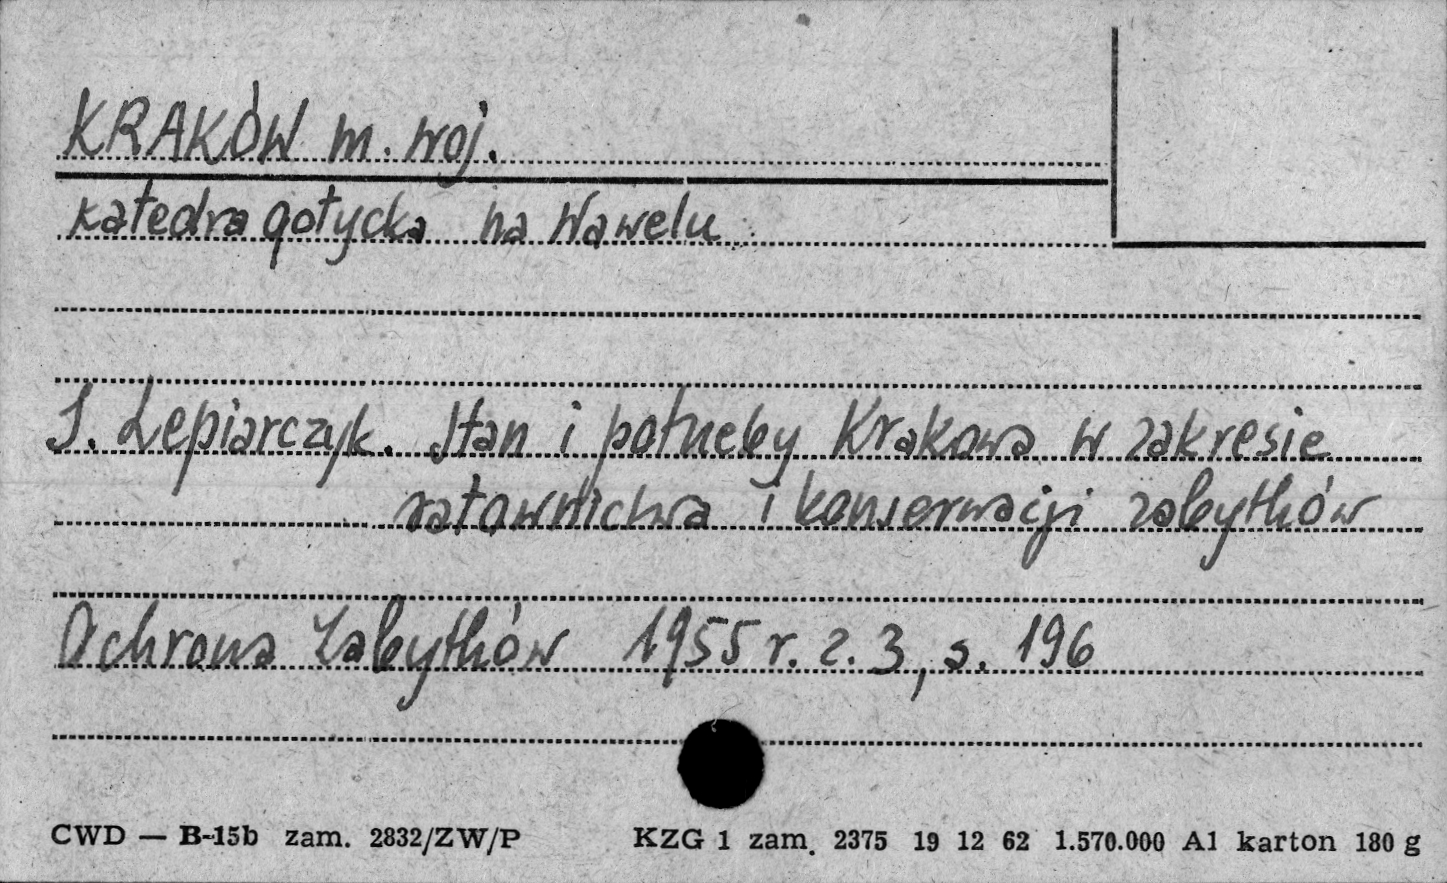 KRAKÓW m. woj.
katedra gotycka na Wawelu
J. Lepiarczyk. Stan i potrzeby Krakowa w zakresie
ratownictwa i konserwacji zabytków
Ochrona Zabytków 1955 r. z. 3, s. 196
CWD — B-15b zam. 2832/ZW/P KZG 1 zam. 2375 19 12 62 1.570.000 A1 karton 180 g